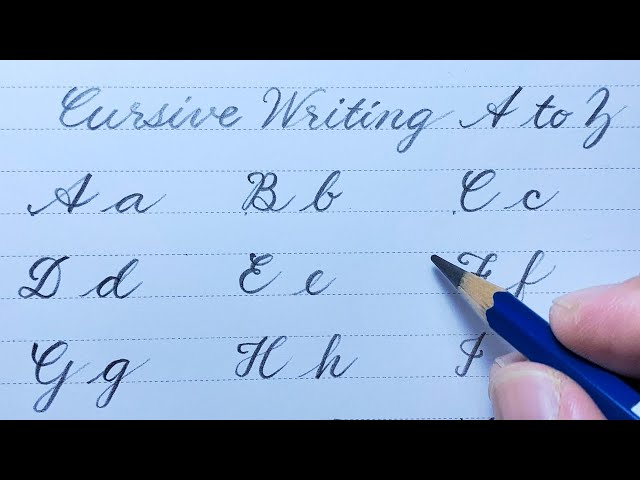 Cursive Writing A to Z
A a B b C c
D d E e F f
G g H h I